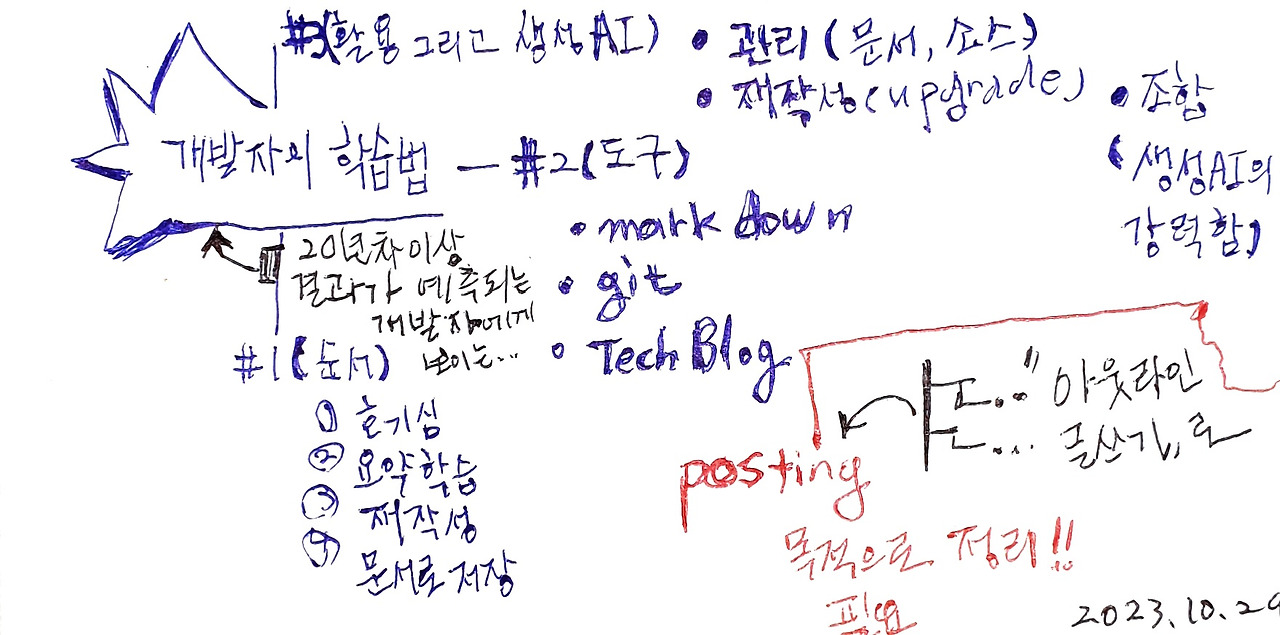 #3(활용 그리고 생성AI)
• 관리 (문서, 소스)
• 재작성(upgrade)
• 조합
(생성AI의
강력함)
개발자의 학습법 - #2(도구)
• markdown
• git
• Tech Blog
20년차이상
결과가 예측되는
개발자에게
보이는...
#1(문서)
① 호기심
② 요약학습
③ 재작성
④ 문서로 저장
"아웃라인
글쓰기"로
posting
목적으로 정리!!
필요
2023.10.29